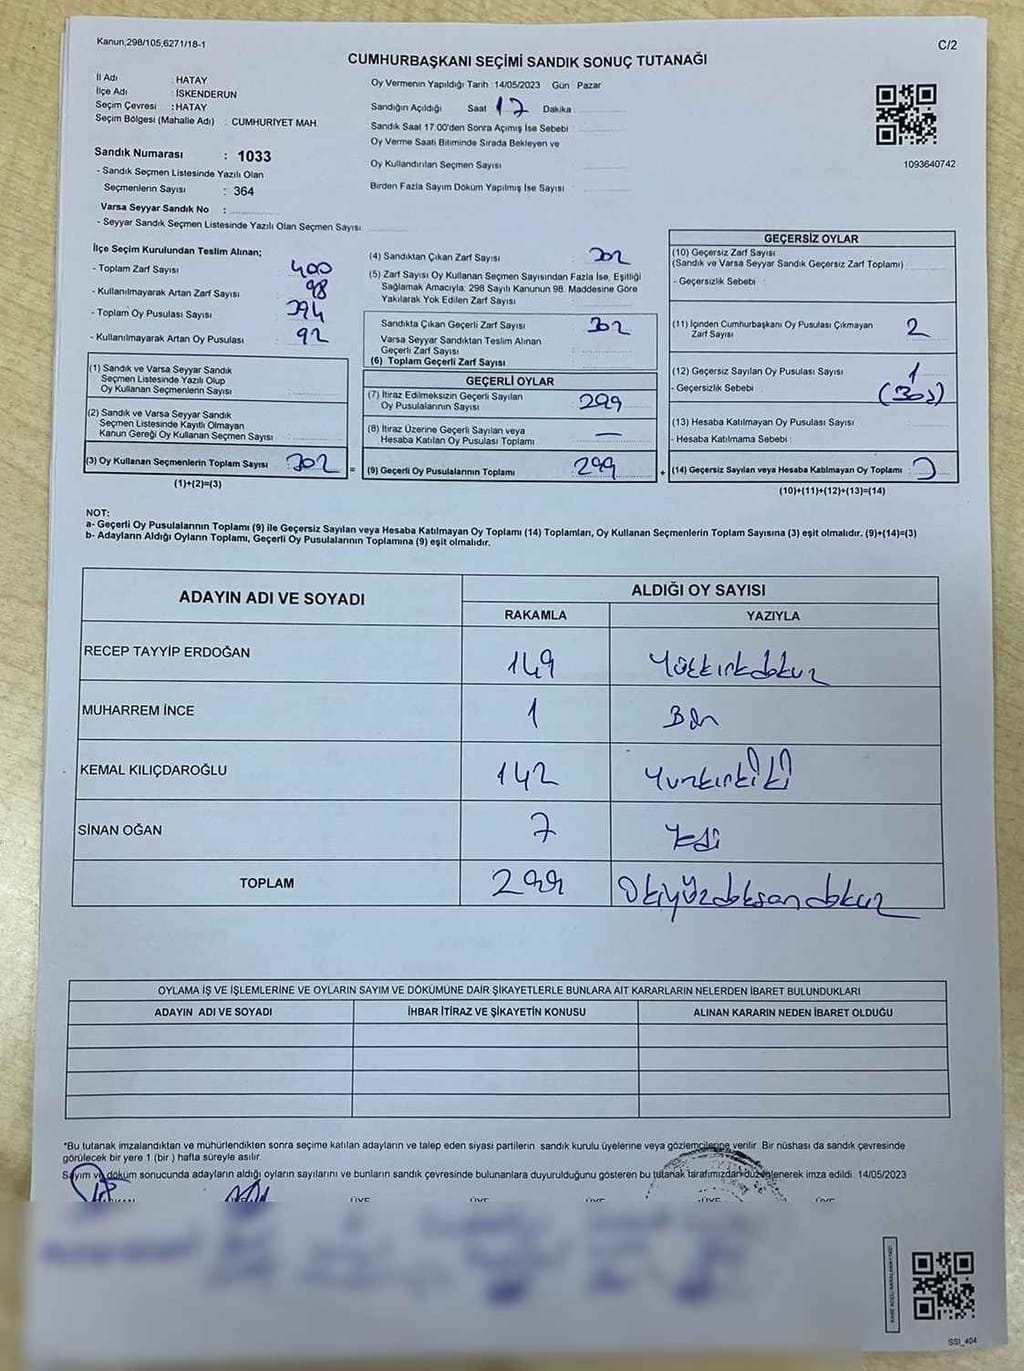 Kanun,298/105,6271/18-1
C/2
CUMHURBAŞKANI SEÇİMİ SANDIK SONUÇ TUTANAĞI
İl Adı : HATAY
İlçe Adı : İSKENDERUN
Seçim Çevresi : HATAY
Seçim Bölgesi (Mahalle Adı) : CUMHURİYET MAH.
Sandık Numarası : 1033
- Sandık Seçmen Listesinde Yazılı Olan
Seçmenlerin Sayısı : 364
Varsa Seyyar Sandık No :
- Seyyar Sandık Seçmen Listesinde Yazılı Olan Seçmen Sayısı
Oy Vermenin Yapıldığı Tarih : 14/05/2023 Gün Pazar
Sandığın Açıldığı Saat 17 Dakika
Sandık Saat 17.00'den Sonra Açımış İse Sebebi
Oy Verme Saati Bitiminde Sırada Bekleyen ve
Oy Kullandırılan Seçmen Sayısı
Birden Fazla Sayım Döküm Yapılmış İse Sayısı
1093640742
İlçe Seçim Kurulundan Teslim Alınan;
- Toplam Zarf Sayısı 400
- Kullanılmayarak Artan Zarf Sayısı 98
- Toplam Oy Pusulası Sayısı 394
- Kullanılmayarak Artan Oy Pusulası 92
(1) Sandık ve Varsa Seyyar Sandık
Seçmen Listesinde Yazılı Olup
Oy Kullanan Seçmenlerin Sayısı
(2) Sandık ve Varsa Seyyar Sandık
Seçmen Listesinde Kayıtlı Olmayan
Kanun Gereği Oy Kullanan Seçmen Sayısı
(3) Oy Kullanan Seçmenlerin Toplam Sayısı 302 =
(1)+(2)=(3)
(4) Sandıktan Çıkan Zarf Sayısı 302
(5) Zarf Sayısı Oy Kullanan Seçmen Sayısından Fazla İse, Eşitliği
Sağlamak Amacıyla; 298 Sayılı Kanunun 98. Maddesine Göre
Yakılarak Yok Edilen Zarf Sayısı
Sandıkta Çıkan Geçerli Zarf Sayısı 302
Varsa Seyyar Sandıktan Teslim Alınan
Geçerli Zarf Sayısı
(6) Toplam Geçerli Zarf Sayısı
GEÇERLİ OYLAR
(7) İtiraz Edilmeksizin Geçerli Sayılan
Oy Pusulalarının Sayısı 299
(8) İtiraz Üzerine Geçerli Sayılan veya
Hesaba Katılan Oy Pusulası Toplamı —
(9) Geçerli Oy Pusulalarının Toplamı 299 +
GEÇERSİZ OYLAR
(10) Geçersiz Zarf Sayısı
(Sandık ve Varsa Seyyar Sandık Geçersiz Zarf Toplamı)
- Geçersizlik Sebebi :
(11) İçinden Cumhurbaşkanı Oy Pusulası Çıkmayan
Zarf Sayısı 2
(12) Geçersiz Sayılan Oy Pusulası Sayısı 1
- Geçersizlik Sebebi :
(13) Hesaba Katılmayan Oy Pusulası Sayısı
- Hesaba Katılmama Sebebi :
(14) Geçersiz Sayılan veya Hesaba Katılmayan Oy Toplamı 3
(10)+(11)+(12)+(13)=(14)
NOT:
a- Geçerli Oy Pusulalarının Toplamı (9) ile Geçersiz Sayılan veya Hesaba Katılmayan Oy Toplamı (14) Toplamları, Oy Kullanan Seçmenlerin Toplam Sayısına (3) eşit olmalıdır. (9)+(14)=(3)
b- Adayların Aldığı Oyların Toplamı, Geçerli Oy Pusulalarının Toplamına (9) eşit olmalıdır.
ADAYIN ADI VE SOYADI
ALDIĞI OY SAYISI
RAKAMLA YAZIYLA
RECEP TAYYİP ERDOĞAN 149 Yüzkırkdokuz
MUHARREM İNCE 1 Bir
KEMAL KILIÇDAROĞLU 142 Yüzkırkiki
SİNAN OĞAN 7 Yedi
TOPLAM 299 İkiyüzdoksandokuz
OYLAMA İŞ VE İŞLEMLERİNE VE OYLARIN SAYIM VE DÖKÜMÜNE DAİR ŞİKAYETLERLE BUNLARA AİT KARARLARIN NELERDEN İBARET BULUNDUKLARI
ADAYIN ADI VE SOYADI İHBAR İTİRAZ VE ŞİKAYETİN KONUSU ALINAN KARARIN NEDEN İBARET OLDUĞU
*Bu tutanak imzalandıktan ve mühürlendikten sonra seçime katılan adayların ve talep eden siyasi partilerin sandık kurulu üyelerine veya gözlemcilerine verilir. Bir nüshası da sandık çevresinde
görülecek bir yere 1 (bir ) hafta süreyle asılır.
Sayım ve döküm sonucunda adayların aldığı oyların sayılarını ve bunların sandık çevresinde bulunanlara duyurulduğunu gösteren bu tutanak tarafımızdan düzenlenerek imza edildi. 14/05/2023
SSI_404